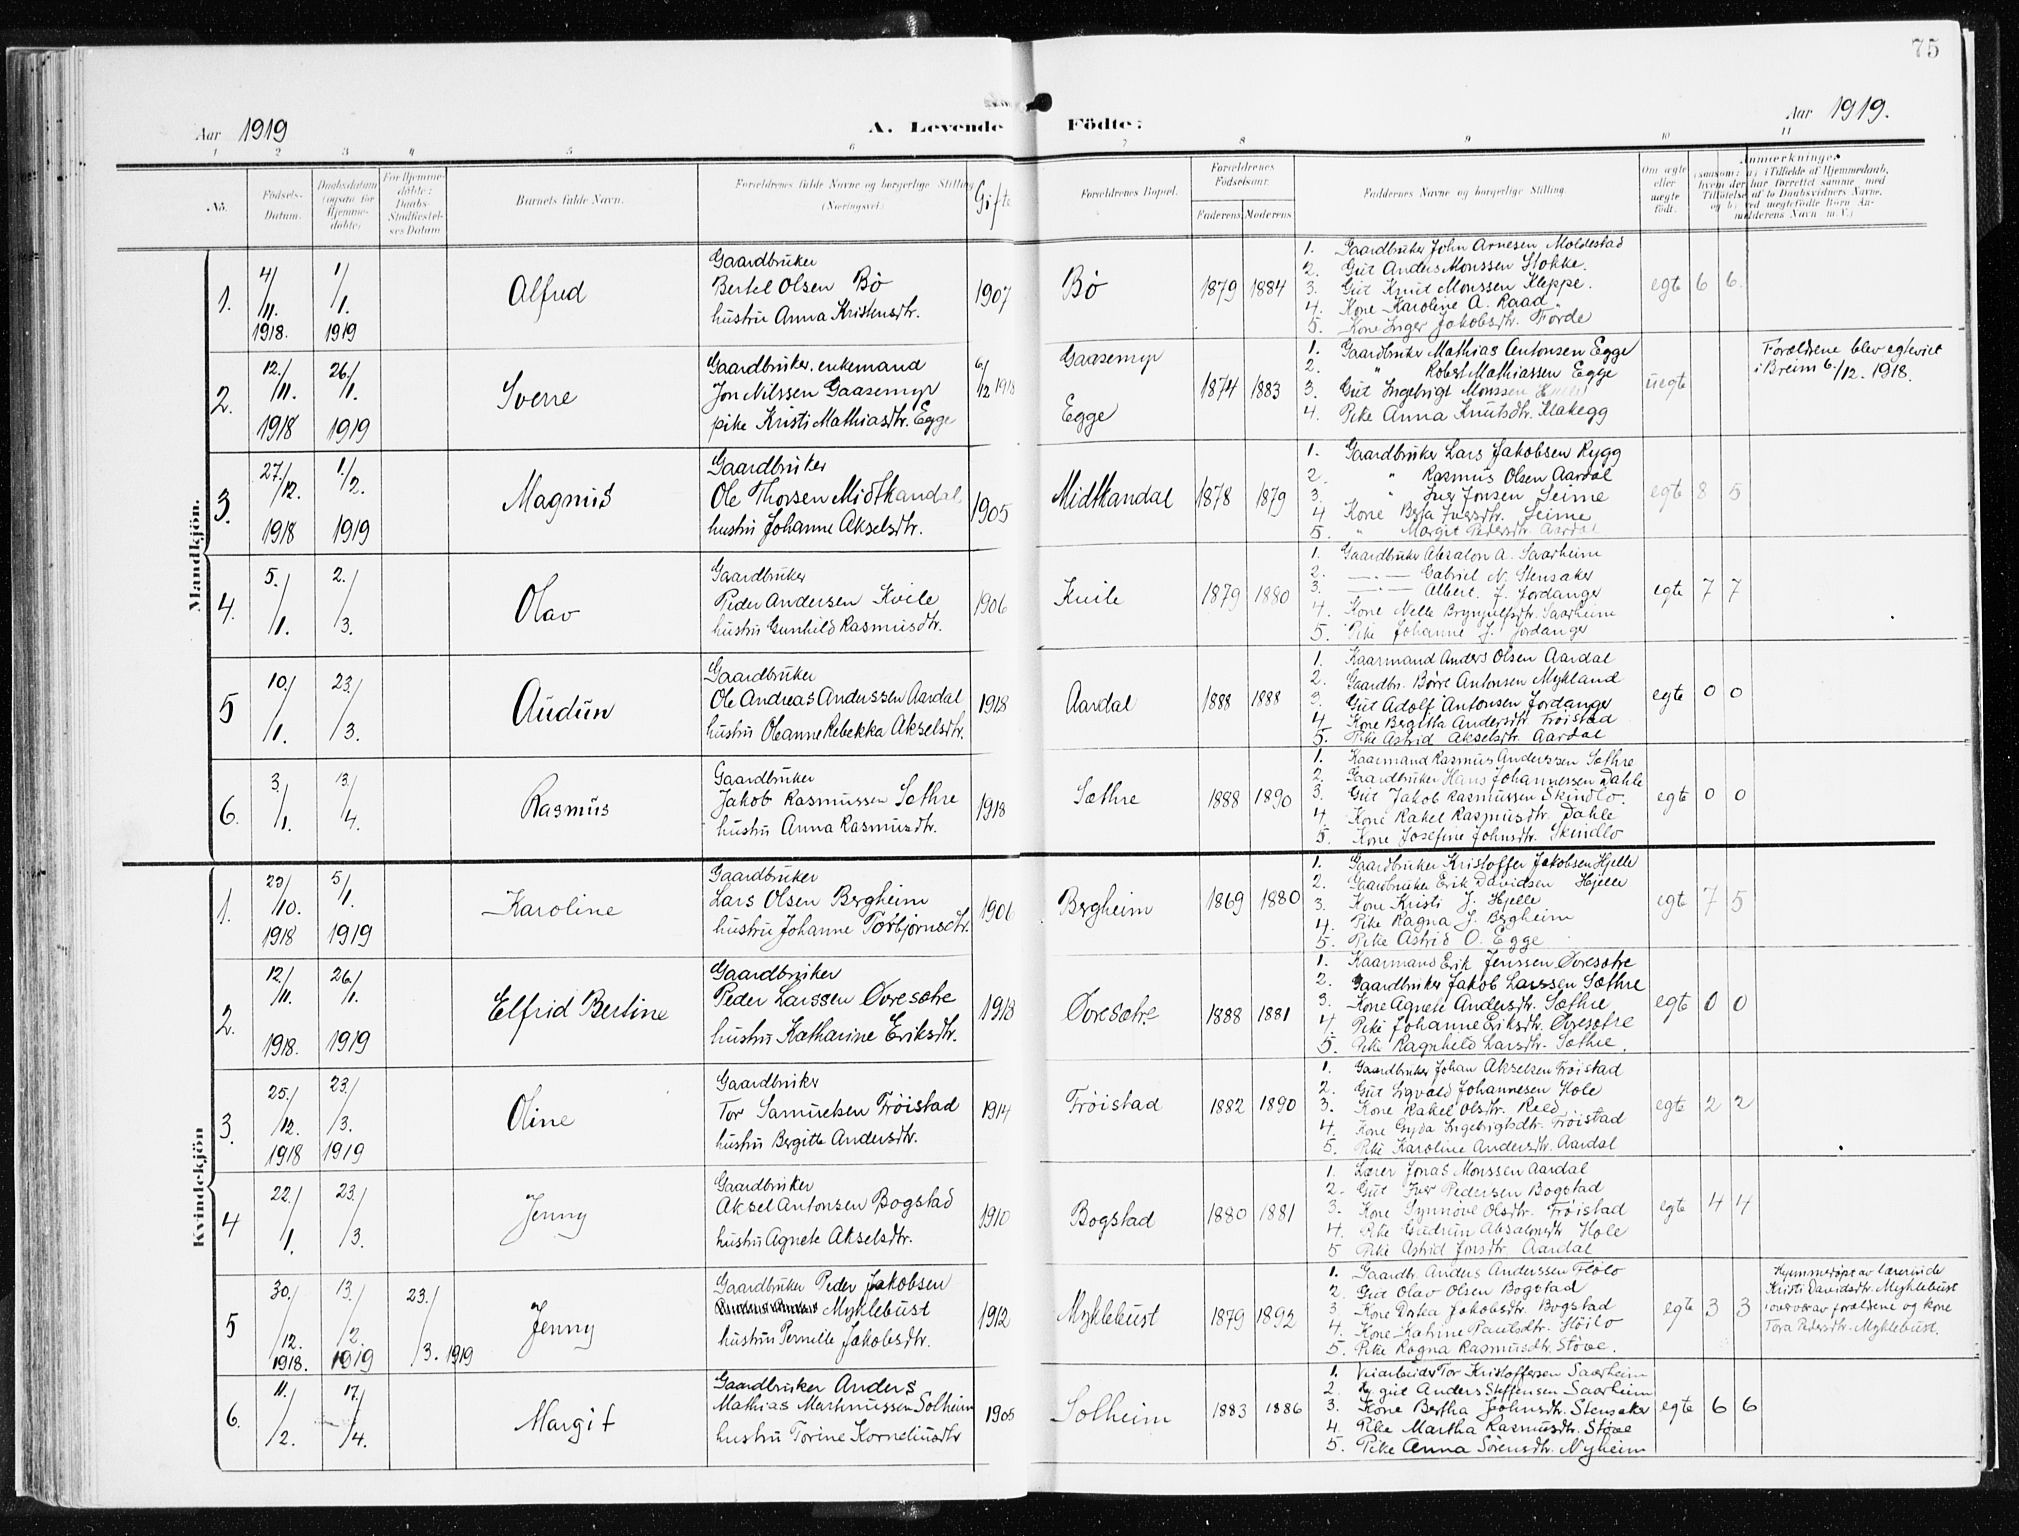 75
Aar 1919
A. Levende Födte:
Aar 1919.
1 2 3 4 5 6 7 8 9 10 11
No.
Födsels-
Datum.
Daabsdatum
(ogsaa for
Hjemme-
döbte)
For Hjemme-
döbte:
Daabs-
Stadfæstel-
ses Datum
Barnets fulde Navn.
Forældrenes fulde Navne og borgerlige Stilling
(Næringsvei)
Gifte
Forældrenes Bopæl.
Forældrenes
Födselsaar.
Faderens Moderens
Faddernes Navne og borgerlige Stilling.
Om ægte
eller
uægte
født.
Anmerkninger
(saasom: a) i Tilfælde af Hjemmedaab,
hvem der har forrettet samme med
Tilföielse af to Daabsvidners Navne,
og b) ved uægtefødte Børn An-
melderens Navn m. V.)
Mandkjön.
1.
4/
11.
1918.
1/
1.
1919
Alfred
Gaardbruker
Bertel Olsen Bø
hustru Anna Kristensdtr.
1907
Bø
1879 1884
1. Gaardbruker John Arnesen Moldestad
2. Gut Anders Monssen Stokke.
3. Gut Knut Monssen Kleppe.
4. Kone Karoline A. Raad
5. Kone Inger Jakobsdtr. Førde
egte 6 6
2.
12./
11.
1918
26./
1.
1919
Sverre
Gaardbruker, enkemand
Jon Nilssen Gaasemyr
pike Kristi Mathiasdtr. Egge
6/
12 1918
Gaasemyr
Egge
1874 1883
1. Gaardbruker Mathias Antonsen Egge
2. " Robert Mathiassen Egge
3. Gut Ingebrigt Monssen
4. Pike Anna Knutsdtr. Klakegg
uegte
Forældrene blev egteviet
i Breim 6/12. 1918.
3.
27./
12.
1918
1./
2.
1919
Magnus
Gaardbruker
Ole Thorsen Midtkandal,
hustru Johanne Akselsdtr.
1905
Midtkandal
1878 1879
1. Gaardbruker Lars Jakobsen Rygg
2. " Rasmus Olsen Aardal
3. " Iver Jonsen Seime
4 Kone Berta Iversdtr. Seime
5. " Margit Pedersdtr. Aardal
egte 8 5
4.
5./
1.
2./
3.
Olav
Gaardbruker
Peder Andersen Kvile
hustru Gunhild Rasmusdtr.
1906
Kvile
1879 1880
1. Gaardbruker Absalon A. Saarheim
2. —.— Gabriel N. Stensaker
3. —.— Albert. J. Jordanger
4. Kone Nelle Brynjulfsdtr. Saarheim
5. Pike Johanne J. Jordanger
egte 7 7
5
10./
1.
23./
3.
Audun
Gaardbruker
Ole Andreas Anderssen Aardal
hustru Oleanne Rebekka Akselsdtr.
1918
Aardal
1888 1888
1. Kaarmand Anders Olsen Aardal
2. Gaardbr. Børre Antonsen Mykland
3. Gut Adolf Antonsen Jordanger
4. Kone Bergitta Andersdtr. Trøistad
5. Pike Astrid Akselsdtr. Aardal
egte 0 0
6.
3./
1.
13./
4.
Rasmus
Gaardbruker
Jakob Rasmussen Sæthre
hustru Anna Rasmusdtr.
1918
Sæthre
1888 1890
1. Kaarmand Rasmus Anderssen Sæthre
2. Gaardbruker Hans Johannessen Dahle
3. Gut Jakob Rasmussen Skindlo.
4. Kone Rakel Rasmusdtr. Dahle
5. Kone Josefine Johnsdtr. Skindlo
egte 0 0
Kvindekjön
1.
/10.
1918
5/
1.
1919
Karoline
Gaardbruker
Lars Olsen Bergheim
hustru Johanne Torbjørnsdtr.
1906
Bergheim
1869 1880
1. Gaardbruker Kristoffer Jakobsen Hjelle
2. Gaardbruker Erik Davidsen Hjelle
3. Kone Kristi J. Hjelle
4. Pike Ragna J. Bergheim
5. Pike Astrid O. Egge
egte 7 5
2.
12/
11.
1918.
26./
1.
1919
Elfrid Bertine
Gaardbruker
Peder Larssen Øvresætre
hustru Katharine Eriksdtr.
1918
Øvresætre
1888 1881
1. Kaarmand Erik Jenssen Øvresætre
2. Gaardbruker Jakob Larssen Sæthre
3. Kone Agnete Andersdtr. Sæthre
4. Pike Johanne Eriksdtr. Øvresætre
5. Pike Ragnhild Larsdtr. Sæthre.
egte 0 0
3.
25./
12.
1918
23./
3.
1919
Oline
Gaardbruker
Tor Samuelsen Trøistad
hustru Bergitte Andersdtr.
1914
Trøistad
1882 1890
1. Gaardbruker Johan Akselsen Trøistad
2. Gut Sigvald Johannesen Hole
3. Kone Rakel Olsdtr. Reed
4. Kone Gyda Ingebrigtsdtr. Trøistad
5. Pike Karoline Andersdtr. Aardal
egte 2 2
4
22./
1.
23./
3.
Jenny
Gaardbruker
Aksel Antonsen Bogstad
hustru Agnete Akselsdtr.
1910
Bogstad
1880 1881
1. Lærer Jonas Monssen Aardal
2. Gut Iver Pedersen Bogstad
3. Kone Synnøve Olsdtr. Trøistad
4. Pike Gudrun Absalonsdtr Hole
5 Pike Astrid Jonsdtr. Aardal
egte 4 4
5
30./
12.
1918.
13./
2.
1919
23./
3. 1919
Jenny
Gaardbruker Peder Jakobsen
Myklebust
hustru Pernille Jakobsdtr.
1912
Myklebust
1879 1892
1. Gaardbr. Anders Anderssen Fløto
2. Gut Olav Olsen Bogstad
3. Kone Jakobsdtr. Bogstad
4. Kone Katrine Paulsdtr.
5. Pike Ragna Rasmusdtr. Støve.
egte 3 3
Hjemmedøpt av lærerinde
Kristi Davidsdtr. Myklebust
i overvær av forældrene og kone
Tora Pedersdtr. Myklebust.
6.
11./
2.
17./
4.
Margit
Gaardbruker Anders
Mathias Martinussen Solheim
hustru Torine Korneliusdtr
1905
Solheim
1883 1886
1. Veiarbeider Tor Kristoffersen Saarheim
2. gut Anders Steffensen Saarheim
3. Kone Bertha Johnsdtr. Stensaker
4. Pike Martha Rasmusdtr. Støve
5. Pike Anna Sørensdtr. Nyheim
egte 6 6